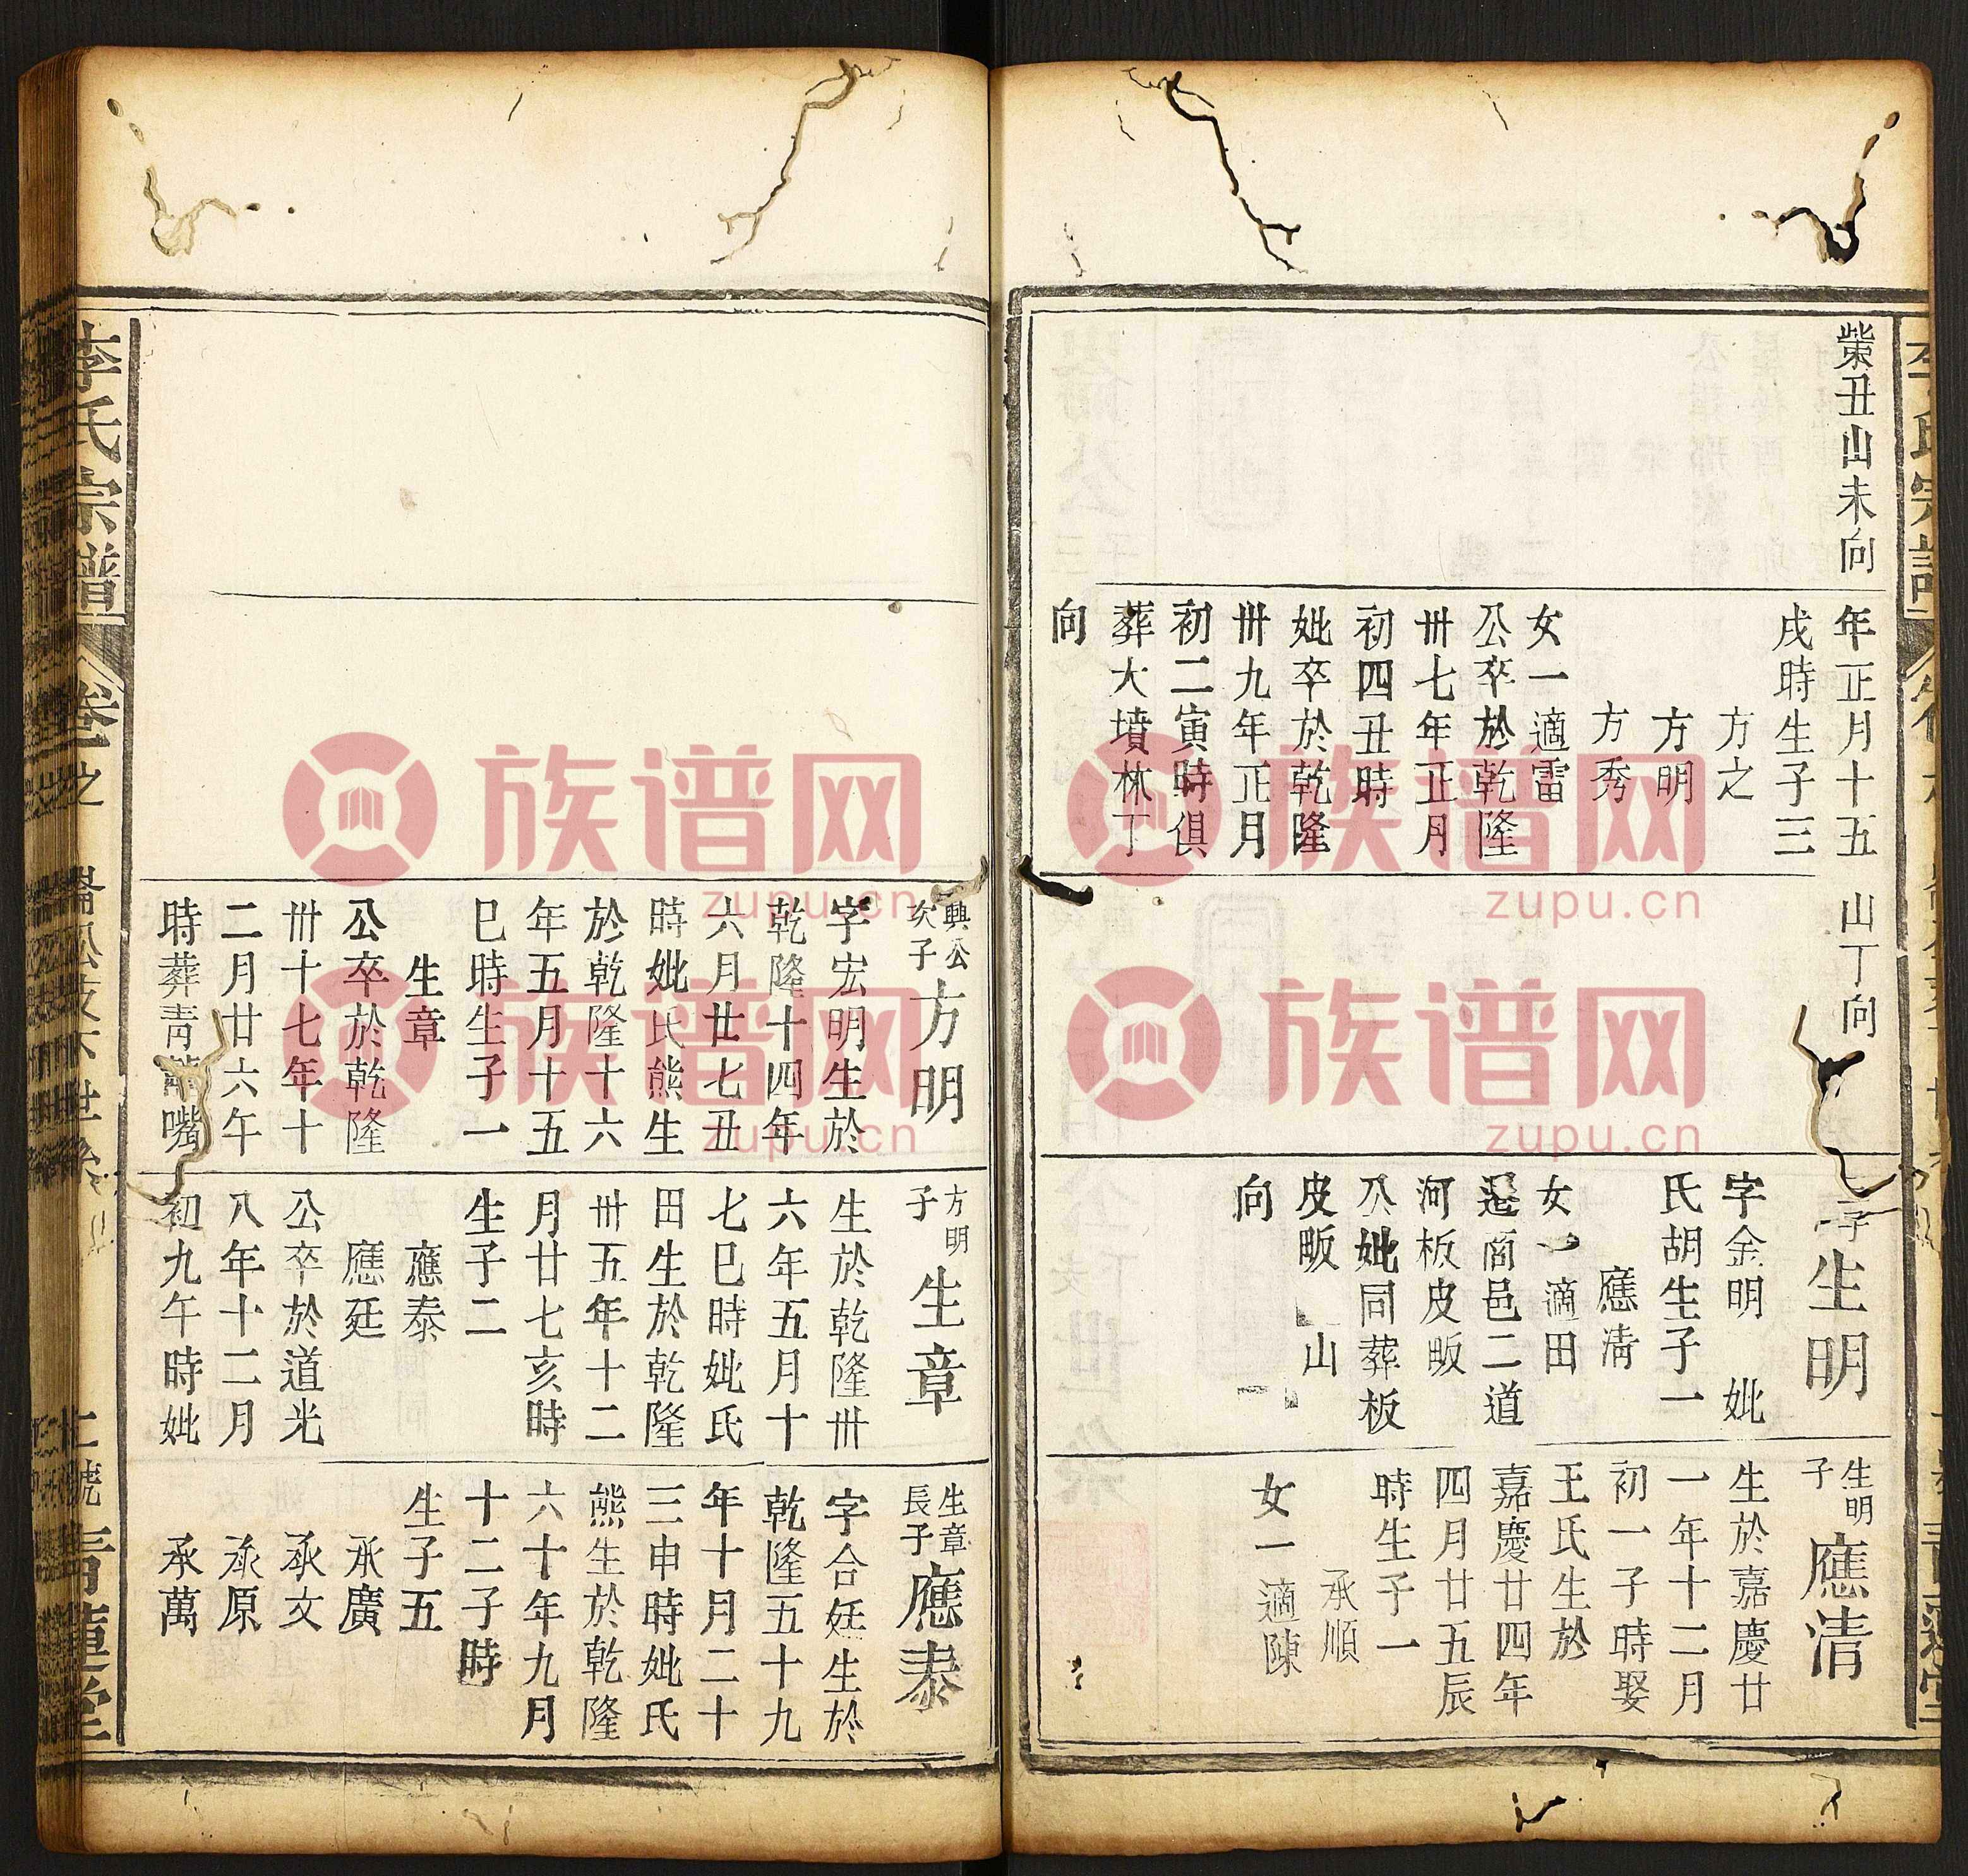 柴丑山未向
年正月十五
戌時生子三
方之
方明
方秀
女一適雷
公卒於乾隆
卅七年正月
初四丑時
妣卒於乾隆
卅九年正月
初二寅時俱
葬大墳林丁
向
山丁向
子
生明
字金明 妣
氏胡生子一
應清
女一適田
遷商邑二道
河板皮畈
公妣同葬板
皮畈 山
向
生明
子
應清
生於嘉慶廿
一年十二月
初一子時娶
王氏生於
嘉慶廿四年
四月廿五辰
時生子一
承順
女一適陳
興公
次子
方明
字宏明生於
乾隆十四年
六月廿七丑
時妣氏熊生
於乾隆十六
年五月十五
巳時生子一
生章
公卒於乾隆
卅十七年十
二月廿六午
時葬青嘴
方明
子
生章
生於乾隆卅
六年五月十
七巳時妣氏
田生於乾隆
卅五年十二
月廿七亥時
生子二
應泰
應廷
公卒於道光
八年十二月
初九午時妣
生章
長子
應泰
字合廷生於
乾隆五十九
年十月二十
三申時妣氏
熊生於乾隆
六十年九月
十二子時
生子五
承廣
承文
承原
承萬
李氏宗譜
卷之
青蓮堂
族谱网
zupu.cn
族谱网
zupu.cn
族谱网
zupu.cn
族谱网
zupu.cn